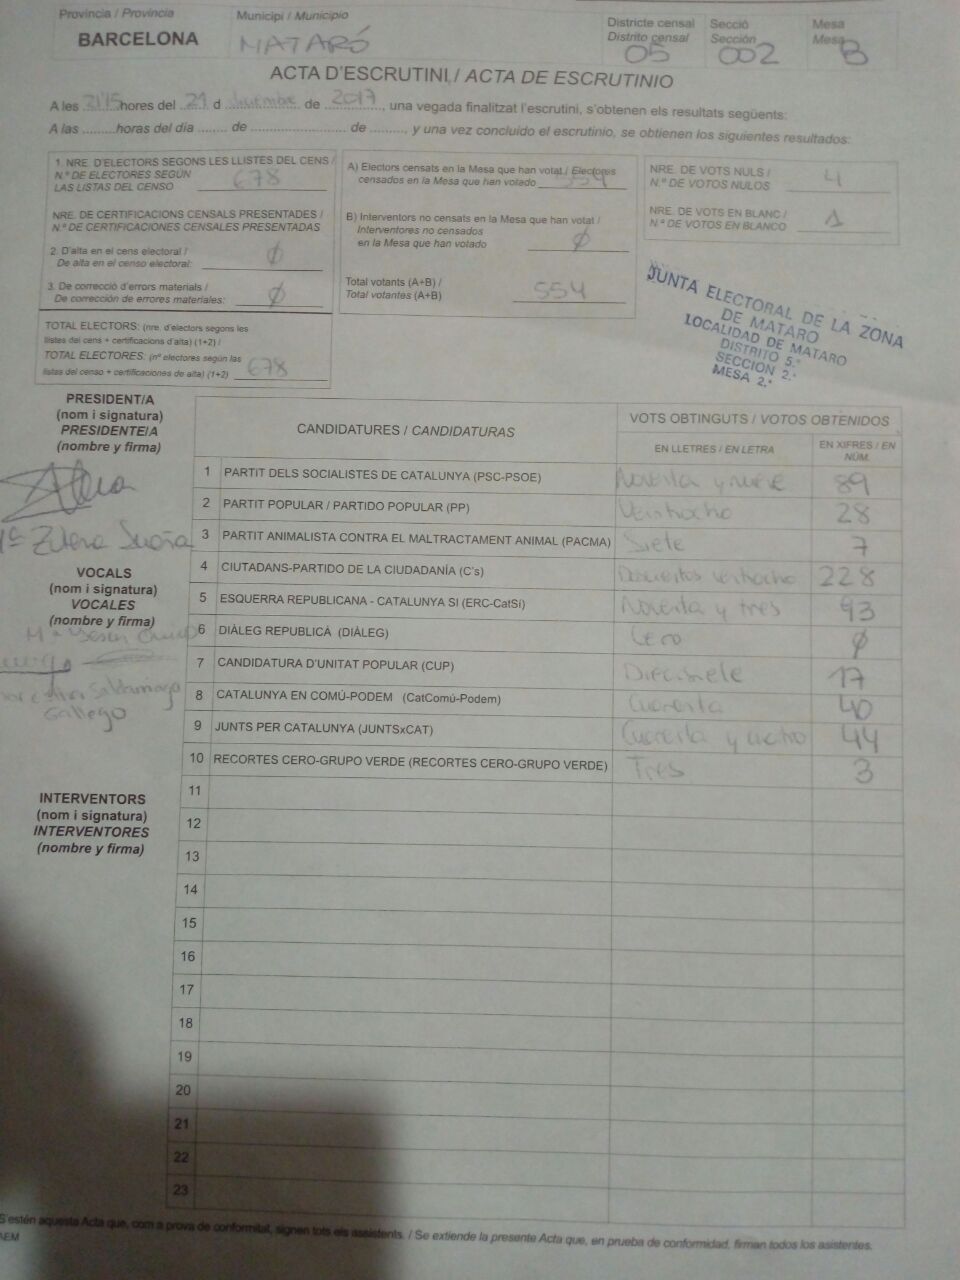 Província / Provincia
BARCELONA
Municipi / Municipio
MATARÓ
Districte censal
Distrito censal
05
Secció
Sección
002
Mesa
Mesa
B
ACTA D'ESCRUTINI / ACTA DE ESCRUTINIO
A les 21'15 hores del 21 d diciembre de 2017, una vegada finalitzat l'escrutini, s'obtenen els resultats següents:
A las ..........horas del día ........ de .......................... de .........., y una vez concluído el escrutinio, se obtienen los siguientes resultados:
1. NRE. D'ELECTORS SEGONS LES LLISTES DEL CENS /
N.º DE ELECTORES SEGÚN
LAS LISTAS DEL CENSO 678
NRE. DE CERTIFICACIONS CENSALS PRESENTADES /
N.º DE CERTIFICACIONES CENSALES PRESENTADAS
2. D'alta en el cens electoral /
De alta en el censo electoral: Ø
3. De correcció d'errors materials /
De corrección de errores materiales: Ø
TOTAL ELECTORS: (nre. d'electors segons les
llistes del cens + certificacions d'alta) (1+2) /
TOTAL ELECTORES: (nº electores según las
listas del censo + certificaciones de alta) (1+2) 678
A) Electors censats en la Mesa que han votat / Electores
censados en la Mesa que han votado 554
B) Interventors no censats en la Mesa que han votat /
Interventores no censados
en la Mesa que han votado Ø
Total votants (A+B) /
Total votantes (A+B) 554
NRE. DE VOTS NULS /
N.º DE VOTOS NULOS 4
NRE. DE VOTS EN BLANC /
N.º DE VOTOS EN BLANCO 1
JUNTA ELECTORAL DE LA ZONA
DE MATARO
LOCALIDAD DE MATARO
DISTRITO 5.º
SECCION 2.ª
MESA 2.ª
PRESIDENT/A
(nom i signatura)
PRESIDENTE/A
(nombre y firma)
VOCALS
(nom i signatura)
VOCALES
(nombre y firma)
Gallego
INTERVENTORS
(nom i signatura)
INTERVENTORES
(nombre y firma)
CANDIDATURES / CANDIDATURAS
VOTS OBTINGUTS / VOTOS OBTENIDOS
EN LLETRES / EN LETRA
EN XIFRES / EN
NÚM.
1 PARTIT DELS SOCIALISTES DE CATALUNYA (PSC-PSOE) 89
2 PARTIT POPULAR / PARTIDO POPULAR (PP) Veintiocho 28
3 PARTIT ANIMALISTA CONTRA EL MALTRACTAMENT ANIMAL (PACMA) Siete 7
4 CIUTADANS-PARTIDO DE LA CIUDADANÍA (C's) 228
5 ESQUERRA REPUBLICANA - CATALUNYA SI (ERC-CatSí) Noventa y tres 93
6 DIÀLEG REPUBLICÀ (DIÀLEG) Cero Ø
7 CANDIDATURA D'UNITAT POPULAR (CUP) Diecisiete 17
8 CATALUNYA EN COMÚ-PODEM (CatComú-Podem) Cuarenta 40
9 JUNTS PER CATALUNYA (JUNTSxCAT) Cuarenta y cuatro 44
10 RECORTES CERO-GRUPO VERDE (RECORTES CERO-GRUPO VERDE) Tres 3
11
12
13
14
15
16
17
18
19
20
21
22
23
S'estén aquesta Acta que, com a prova de conformitat, signen tots els assistents. / Se extiende la presente Acta que, en prueba de conformidad, firman todos los asistentes.
AEM